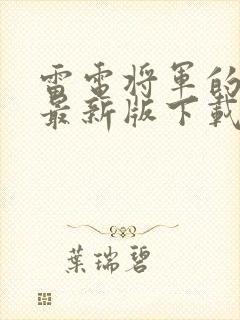 雷電將軍的
最新版下載
葉瑞碧